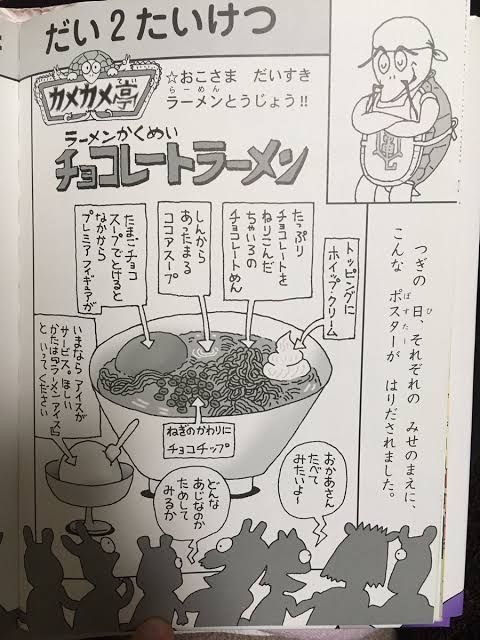 だい2たいけつ
カメカメ亭
てい
☆おこさま だいすき
らーめん
ラーメンとうじょう!!
ラーメンかくめい
チョコレートラーメン
つぎの 日、それぞれの みせのまえに、
ひ
こんな ポスターが はりだされました。
ぽすたー
トッピングに
ホイップ・クリーム
たっぷり
チョコレートを
ねりこんだ
ちゃいろの
チョコレートめん
しんから
あったまる
ココアスープ
たまごチョコ
スープでとけると
なかから
プレミアフィギュアが
いまなら アイスが
サービス。ほしい
かたは「ラーメンアイス」
と いってください
ねぎのかわりに
チョコチップ
おかあさん
たべて
みたいよ〜
どんな
あじなのか
ためして
みるか